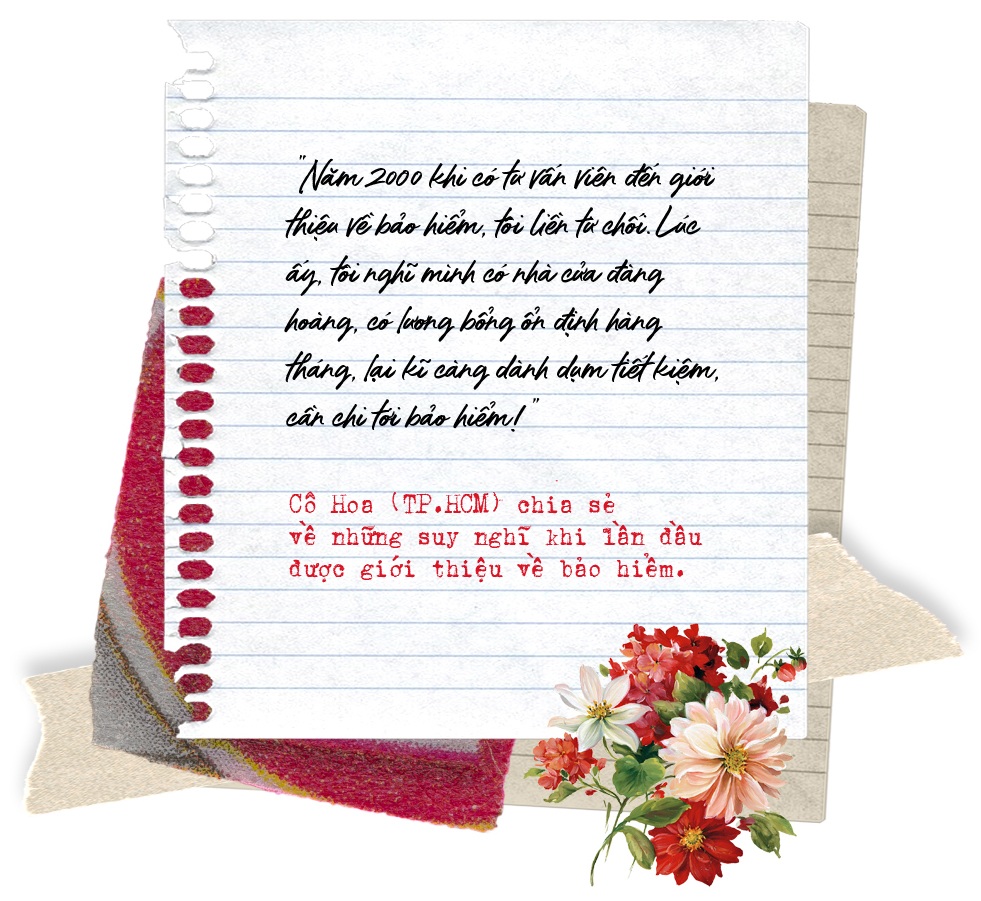 "Năm 2000 khi có tư vấn viên đến giới
thiệu về bảo hiểm, tôi liền từ chối. Lúc
ấy, tôi nghĩ mình có nhà cửa đàng
hoàng, có lương bổng ổn định hàng
tháng, lại kĩ càng dành dụm tiết kiệm,
cần chi tới bảo hiểm!"
Cô Hoa (TP.HCM) chia sẻ
về những suy nghĩ khi lần đầu
được giới thiệu về bảo hiểm.